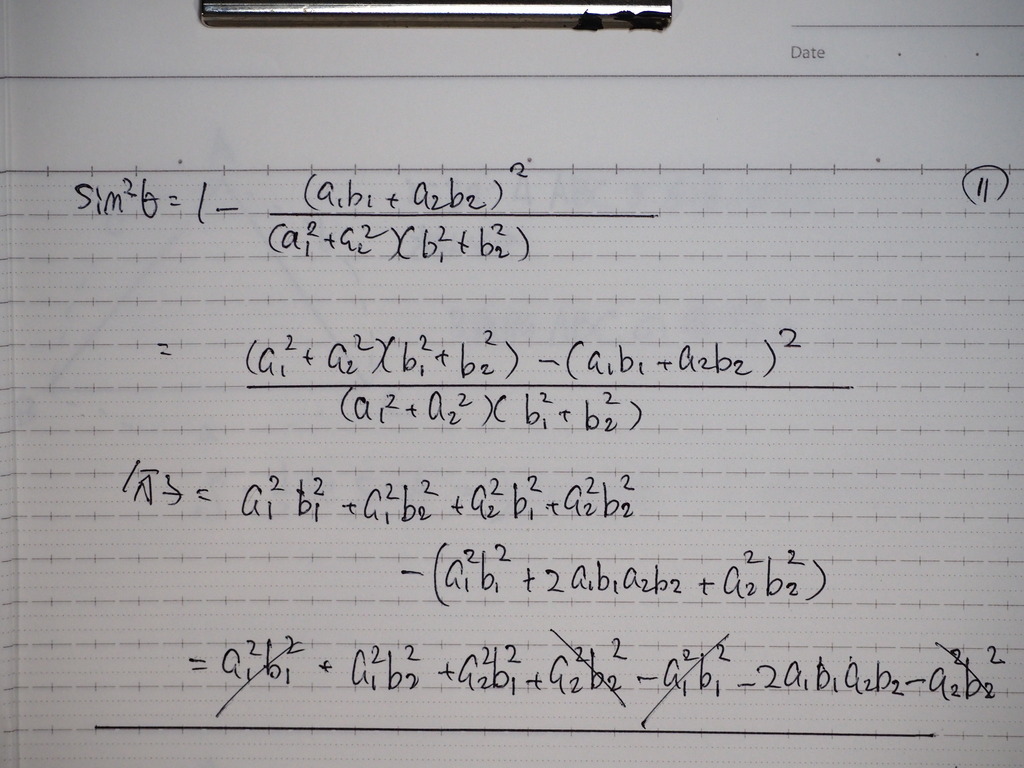 Date
sin²θ = 1 - (a₁b₁ + a₂b₂)² / (a₁² + a₂²)(b₁² + b₂²)
⑪
= (a₁² + a₂²)(b₁² + b₂²) - (a₁b₁ + a₂b₂)² / (a₁² + a₂²)(b₁² + b₂²)
分子 = a₁²b₁² + a₁²b₂² + a₂²b₁² + a₂²b₂²
- (a₁²b₁² + 2a₁b₁a₂b₂ + a₂²b₂²)
= a₁²b₁² + a₁²b₂² + a₂²b₁² + a₂²b₂² - a₁²b₁² - 2a₁b₁a₂b₂ - a₂²b₂²